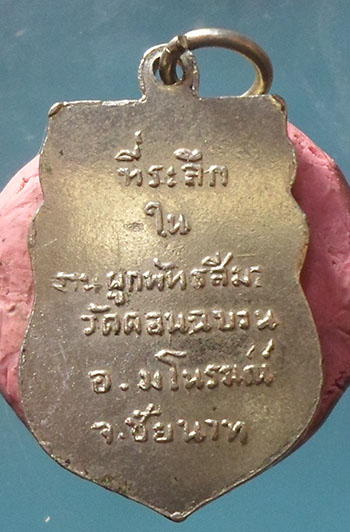 ที่ระลึก
ใน
งานผูกพัทธสีมา
วัดดอนฉบวน
อ.มโนรมณ์
จ.ชัยนาท